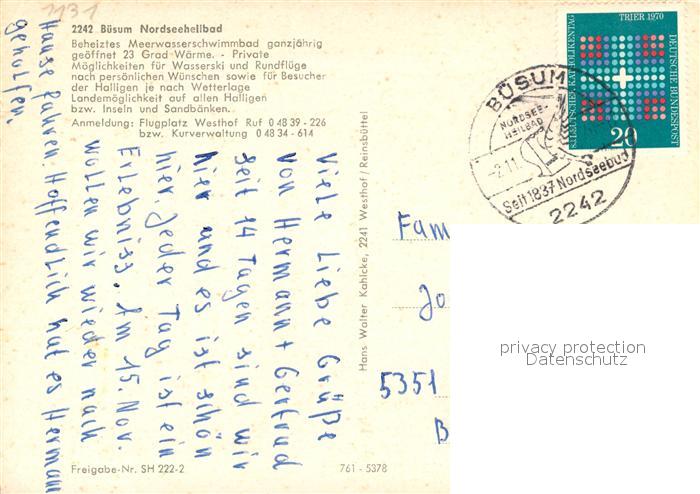 1131
2242 Büsum Nordseeheilbad
Beheiztes Meerwasserschwimmbad ganzjährig
geöffnet 23 Grad Wärme. - Private
Möglichkeiten für Wasserski und Rundflüge
nach persönlichen Wünschen sowie für Besucher
der Halligen je nach Wetterlage
Landemöglichkeit auf allen Halligen
bzw. Inseln und Sandbänken.
Anmeldung: Flugplatz Westhof Ruf 0 48 39 - 226
bzw. Kurverwaltung 0 48 34 - 614
Viele Liebe Grüße
von Hermann + Gertrud
seit 14 Tagen sind wir
hier und es ist schön
hier. Jeder Tag ist ein
Erlebniss. Am 15. Nov.
wollen wir wieder nach
Hause fahren. Hoffendlich hat es Hermann
geholfen.
Freigabe-Nr. SH 222-2
761 - 5378
Hans Walter Kahlcke, 2241 Westhof / Reinsbüttel
TRIER 1970
83. DEUTSCHER KATHOLIKENTAG
DEUTSCHE BUNDESPOST
20
BÜSUM
NORDSEE-
HEILBAD
-2.11.
Seit 1837 Nordseebad
2242
Fam
Jo
5351
B
privacy protection
Datenschutz